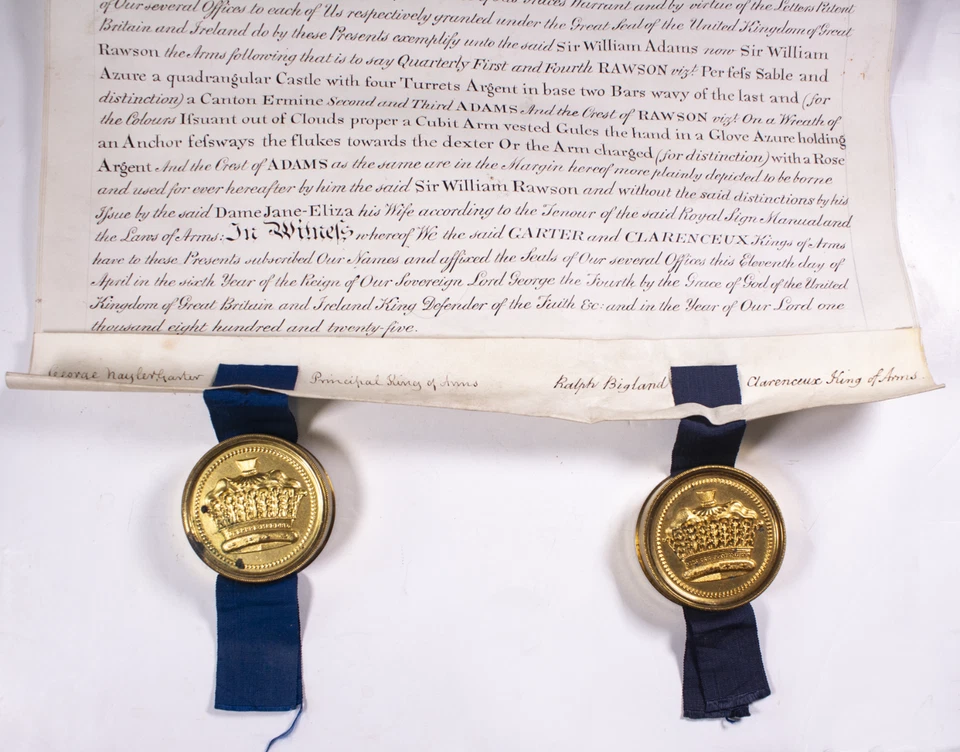 of Our several Offices to each of Us respectively granted under the Great Seal of the United Kingdom of Great
Britain and Ireland do by these Presents exemplify unto the said Sir William Adams now Sir William
Rawson the Arms following that is to say Quarterly First and Fourth RAWSON vizt. Per feſs Sable and
Azure a quadrangular Castle with four Turrets Argent in base two Bars wavy of the last and (for
distinction) a Canton Ermine Second and Third ADAMS And the Crest of RAWSON vizt. On a Wreath of
the Colours Iſsuant out of Clouds proper a Cubit Arm vested Gules the hand in a Glove Azure holding
an Anchor feſsways the flukes towards the dexter Or the Arm charged (for distinction) with a Rose
Argent And the Crest of ADAMS as the same are in the Margin hereof more plainly depicted to be borne
and used for ever hereafter by him the said Sir William Rawson and without the said distinctions by his
Iſsue by the said Dame Jane-Eliza his Wife according to the Tenour of the said Royal Sign Manual and
the Laws of Arms: In Witneſs whereof We the said GARTER and CLARENCEUX Kings of Arms
have to these Presents subscribed Our Names and affixed the Seals of Our several Offices this Eleventh day of
April in the sixth Year of the Reign of Our Sovereign Lord George the Fourth by the Grace of God of the United
Kingdom of Great Britain and Ireland King Defender of the Faith &c. and in the Year of Our Lord one
thousand eight hundred and twenty-five.
George Nayler Garter Principal King of Arms Ralph Bigland Clarenceux King of Arms